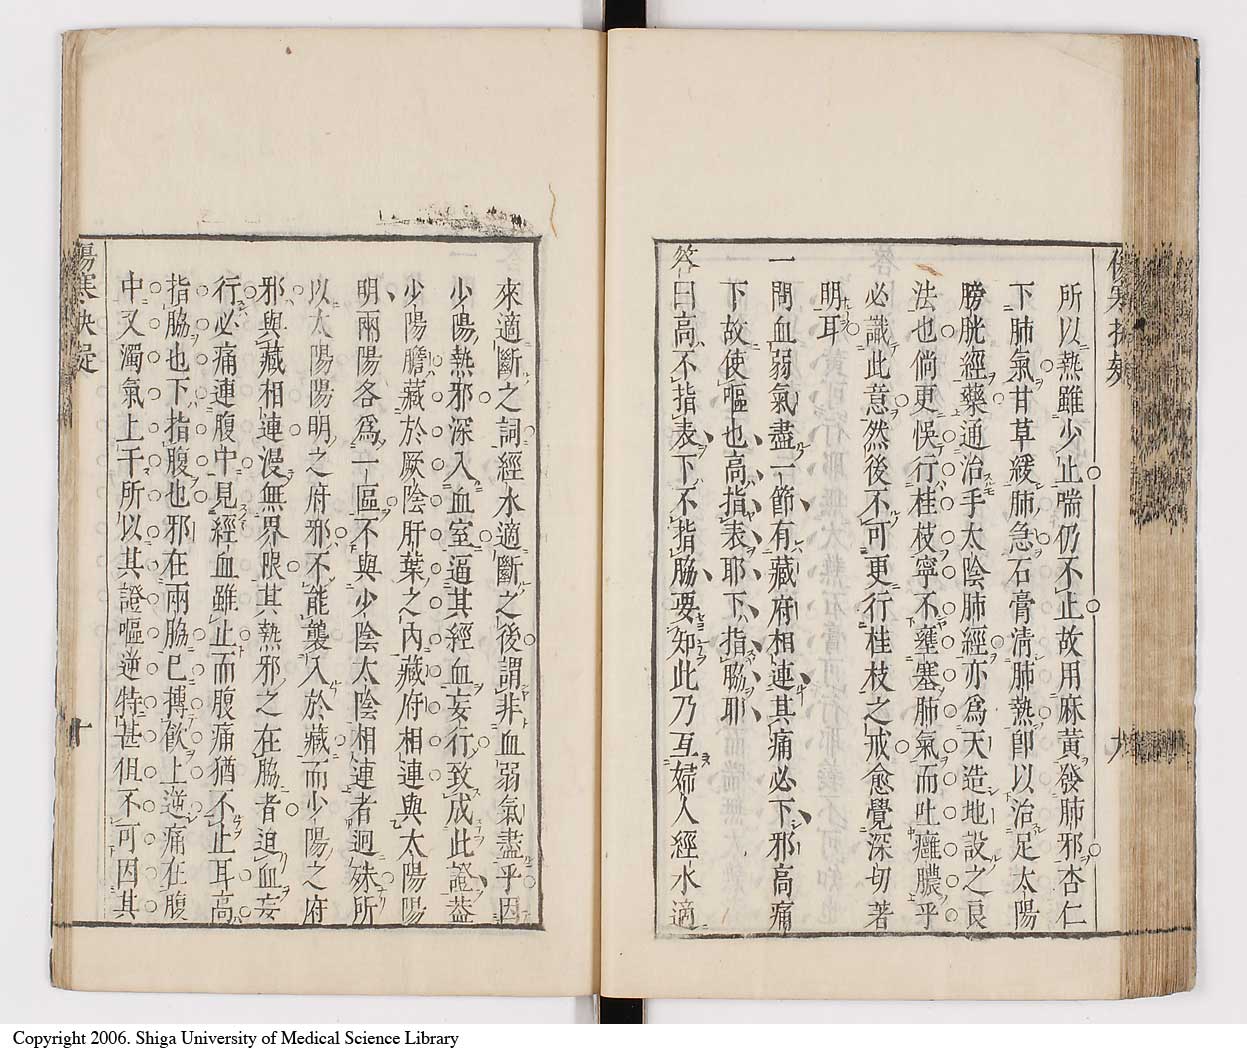 所以熱雖少止喘仍不止故用麻黃發肺邪杏仁
下肺氣甘草緩肺急石膏清肺熱卽以治足太陽
膀胱經藥通治手太陰肺經亦爲天造地設之良
法也倘更悞行桂枝寧不壅塞肺氣而吐癰膿乎
必識此意然後不可更行桂枝之戒愈覺深切著
明耳
一問血弱氣盡一節有藏府相連其痛必下邪高痛
下故使嘔也高指表耶下指脇耶
答曰高不指表下不指脇要知此乃互婦人經水適
九
來適斷之詞經水適斷之後謂非血弱氣盡乎因
少陽熱邪深入血室逼其經血妄行致成此證葢
少陽膽藏於厥陰肝葉之內藏府相連與太陽陽
明兩陽各爲一區不與少陰太陰相連者迥殊所
以太陽陽明之府邪不能襲入於藏而少陽之府
邪與藏相連漫無界限其熱邪之在脇者迫血妄
行必痛連腹中見經血雖止而腹痛猶不止耳高
指脇也下指腹也邪在兩脇已搏飮上逆痛在腹
中又濁氣上干所以其證嘔逆特甚但不可因其
傷寒抉疑
十
Copyright 2006. Shiga University of Medical Science Library